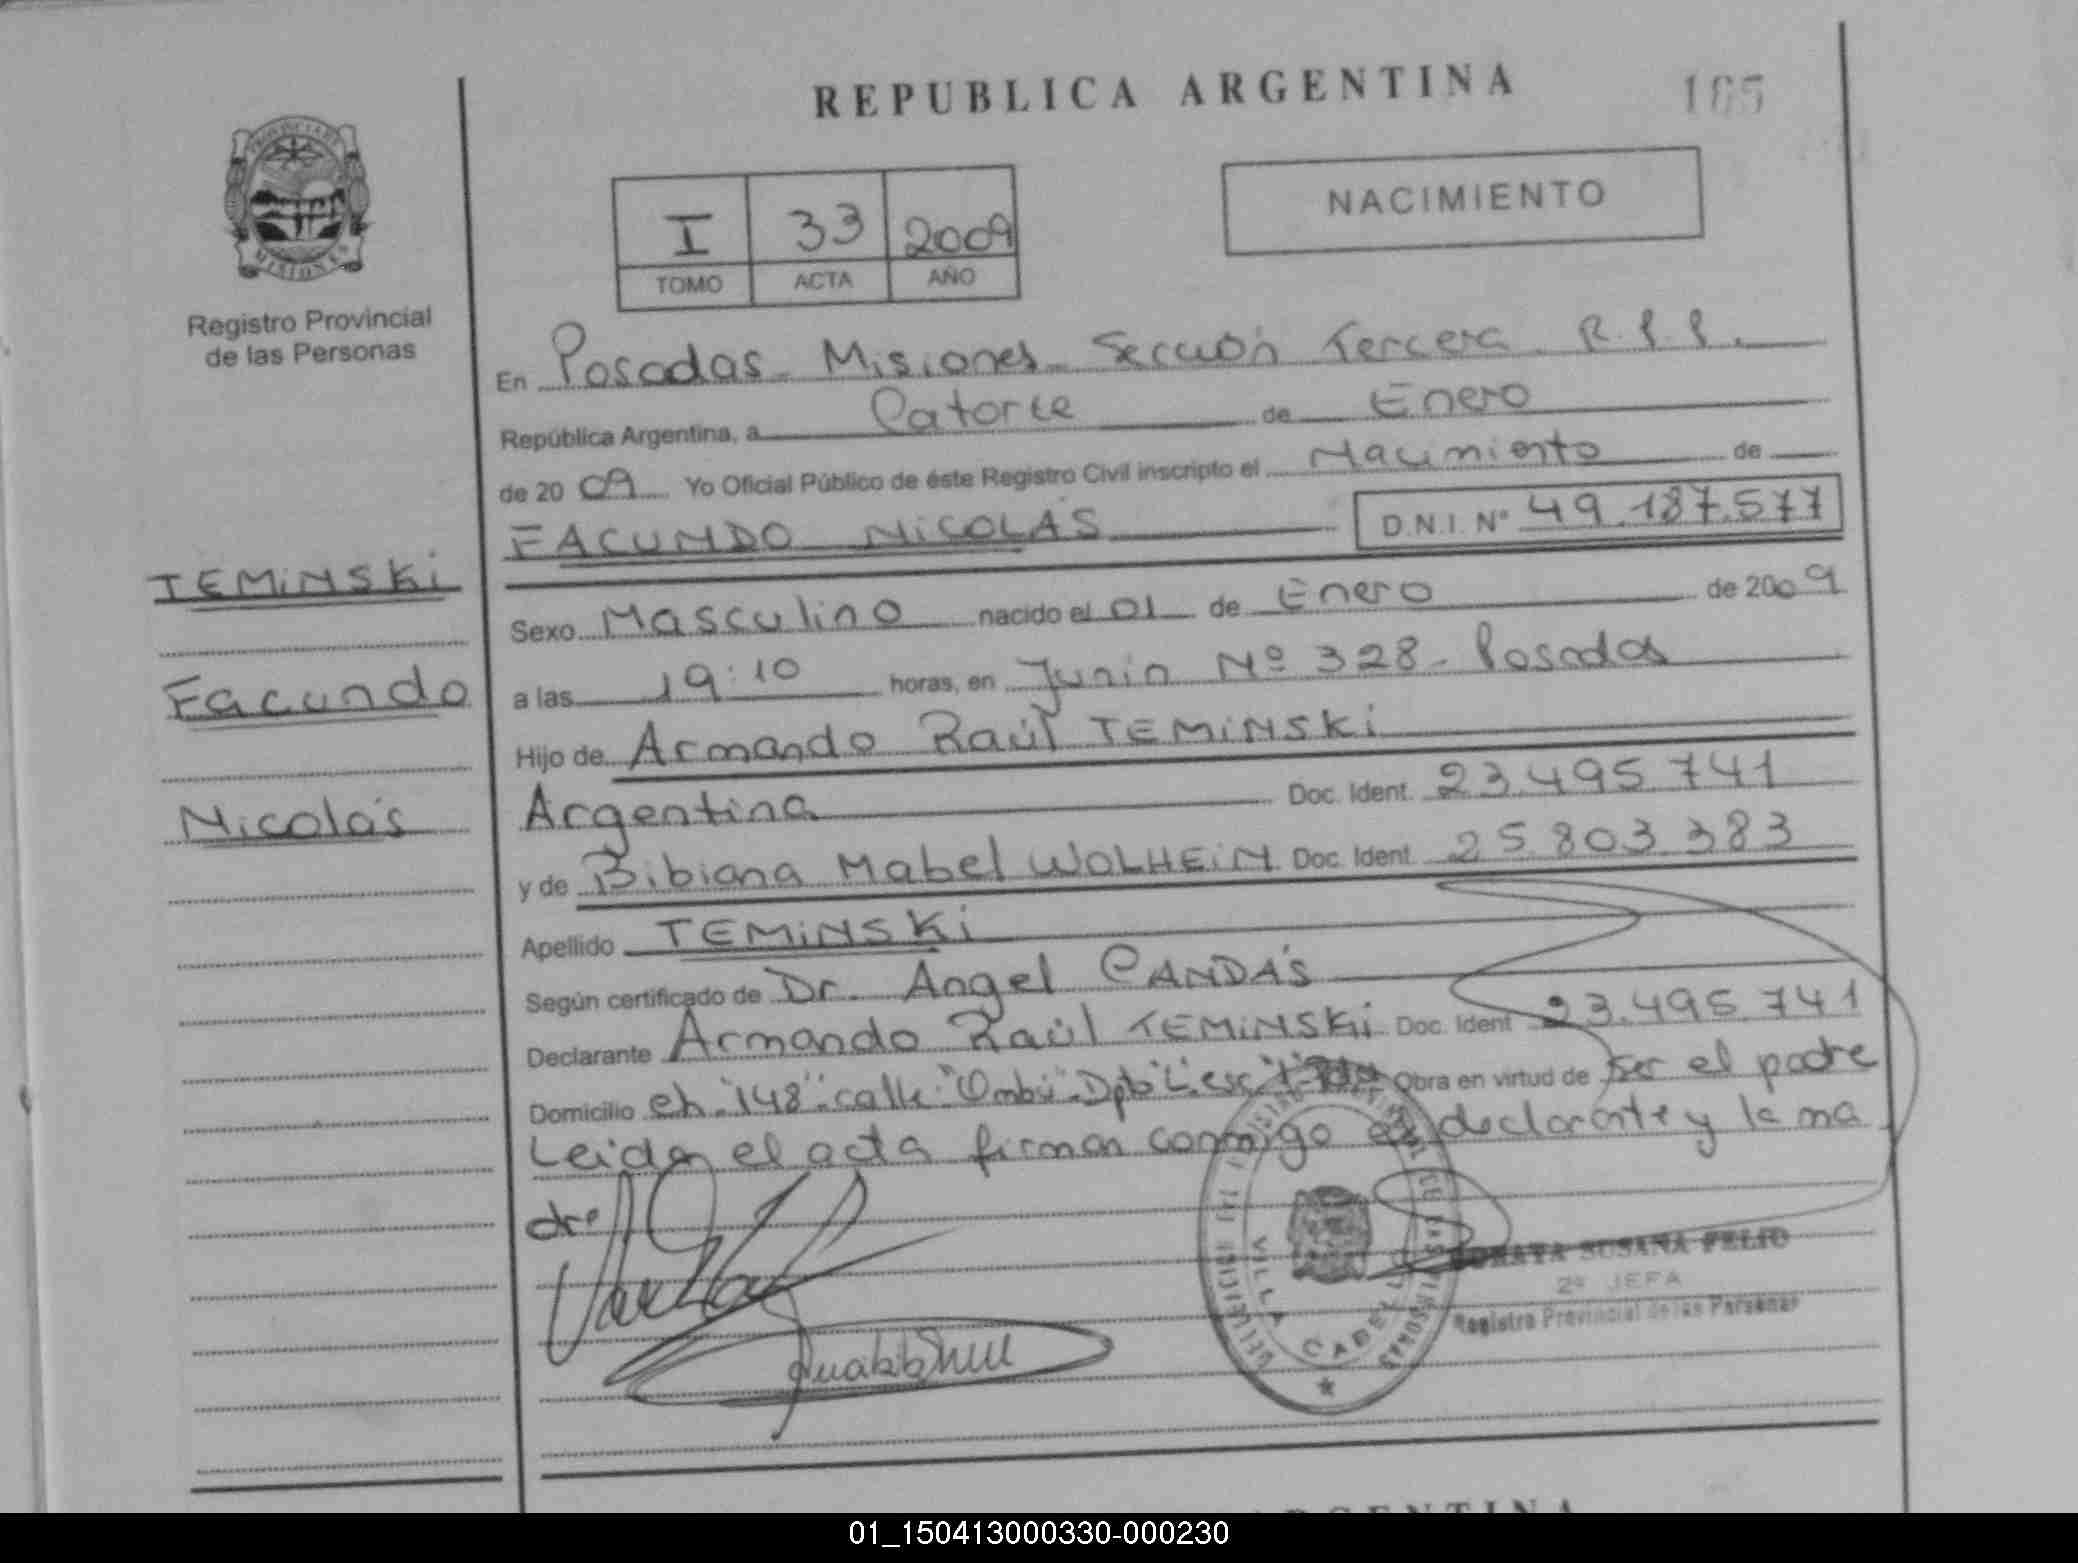 REPUBLICA ARGENTINA
165
PROVINCIA DE
MISIONES
Registro Provincial
de las Personas
I 33 2009
TOMO ACTA AÑO
NACIMIENTO
En Posadas - Misiones - Sección Tercera - R.P.P.
República Argentina, a Catorce de Enero
de 2009 Yo Oficial Público de éste Registro Civil inscripto el Nacimiento de
FACUNDO NICOLÁS D.N.I. Nº 49.187.577
TEMiNSKi
Facundo
Nicolás
Sexo Masculino nacido el 01 de Enero de 2009
a las 19:10 horas, en Junin Nº 328 - Posadas
Hijo de Armando Raúl TEMiNSKi
Argentina Doc. Ident. 23.495.741
y de Bibiana Mabel WOLHEiN Doc. Ident. 25.803.383
Apellido TEMiNSKi
Según certificado de Dr. Angel CANDÁS
Declarante Armando Raúl TEMiNSKi Doc. Ident 23.495.741
Domicilio ch "148" calle "Ombú" Dpto "L" esc "1" Obra en virtud de ser el padre
Leida el acta firman conmigo el declarante y la ma
dre
VILLA CABELLO
SUSANA FELIO
2ª JEFA
Registro Provincial de las Personas
ARGENTINA
01_150413000330-000230